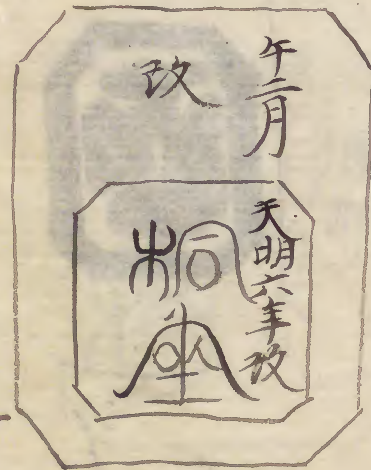 午二月
改
天明六年改
桐座